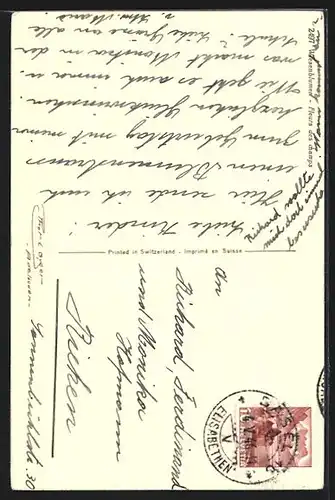 Liebe Kinder!
Hier sende ich euch
einen Blumenstrauss
zum Geburtstag mit meinen
herzlichen Glückwünschen
Wie geht es euch immer u.
was macht Monika in der
Schule? Liebe Grüsse an alle
Richard wollte
mich doch einmal
besuchen
2677 Wiesenblumen - Fleurs des champs
Printed in Switzerland - Imprimé en Suisse
An
Richard, Ferdinand
und Monika
Hofmann
Ricken
Sonnenbühlstr. 30
BASEL
ELISABETHEN